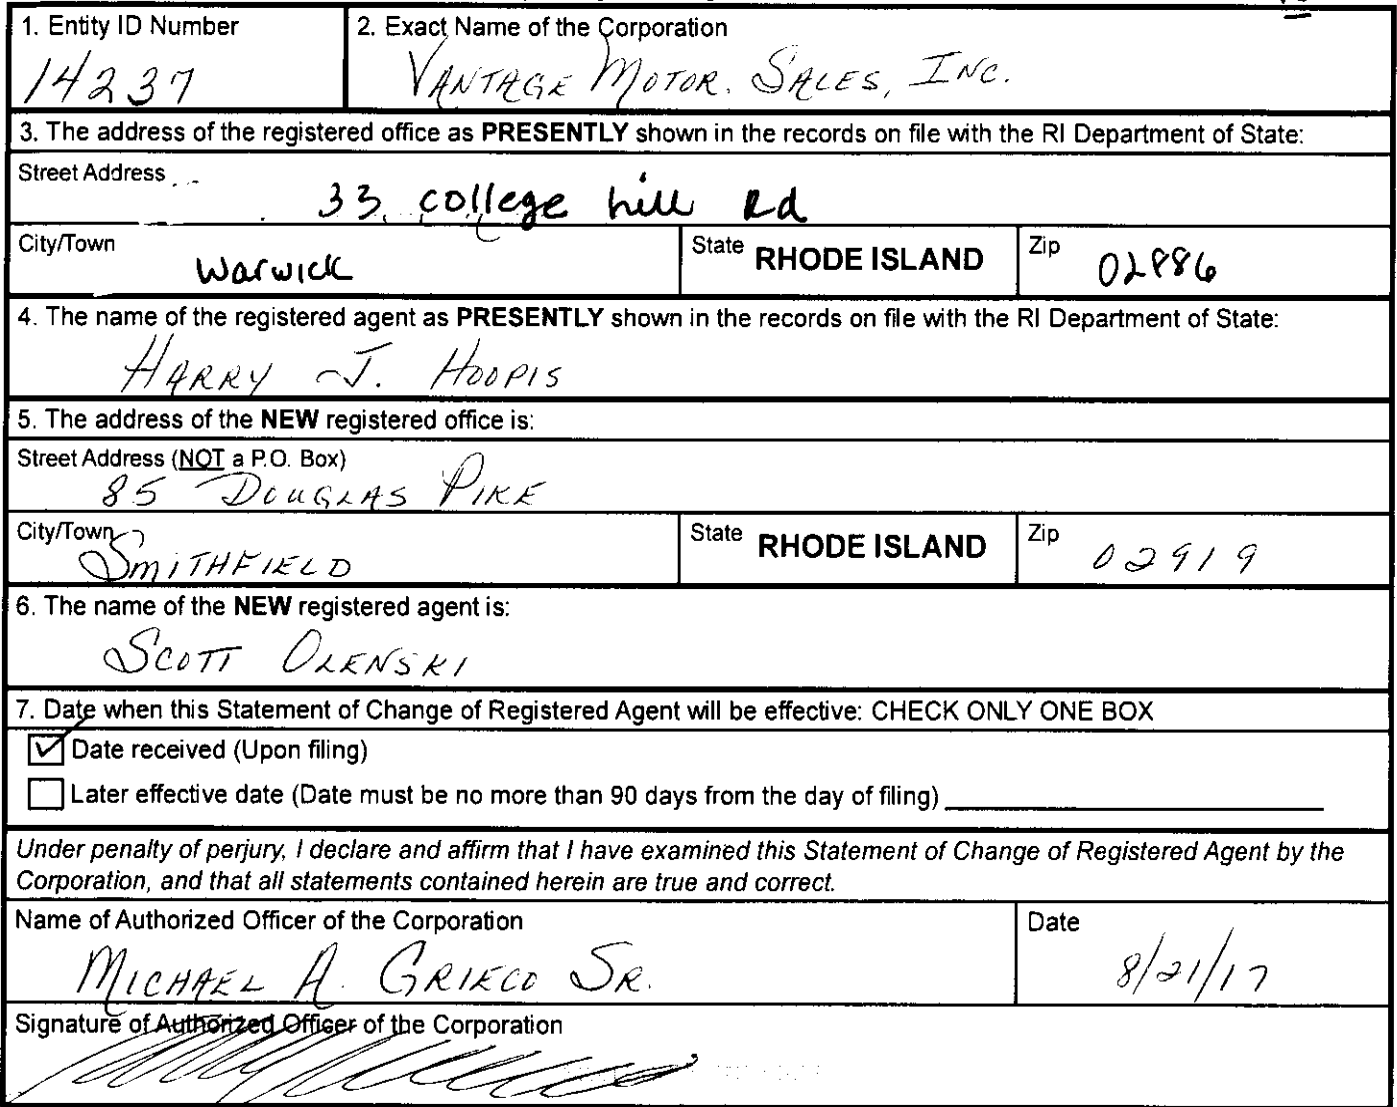 1. Entity ID Number
14237
2. Exact Name of the Corporation
VANTAGE MOTOR. SALES, INC.
3. The address of the registered office as PRESENTLY shown in the records on file with the RI Department of State:
Street Address
33 college hill Rd
City/Town
Warwick
State RHODE ISLAND
Zip
02886
4. The name of the registered agent as PRESENTLY shown in the records on file with the RI Department of State:
HARRY J. HOOPIS
5. The address of the NEW registered office is:
Street Address (NOT a P.O. Box)
85 DOUGLAS PIKE
City/Town
SMITHFIELD
State RHODE ISLAND
Zip
02919
6. The name of the NEW registered agent is:
SCOTT OLENSKI
7. Date when this Statement of Change of Registered Agent will be effective: CHECK ONLY ONE BOX
Date received (Upon filing)
Later effective date (Date must be no more than 90 days from the day of filing)
Under penalty of perjury, I declare and affirm that I have examined this Statement of Change of Registered Agent by the
Corporation, and that all statements contained herein are true and correct.
Name of Authorized Officer of the Corporation
MICHAEL A. GRIECO SR.
Date
8/21/17
Signature of Authorized Officer of the Corporation